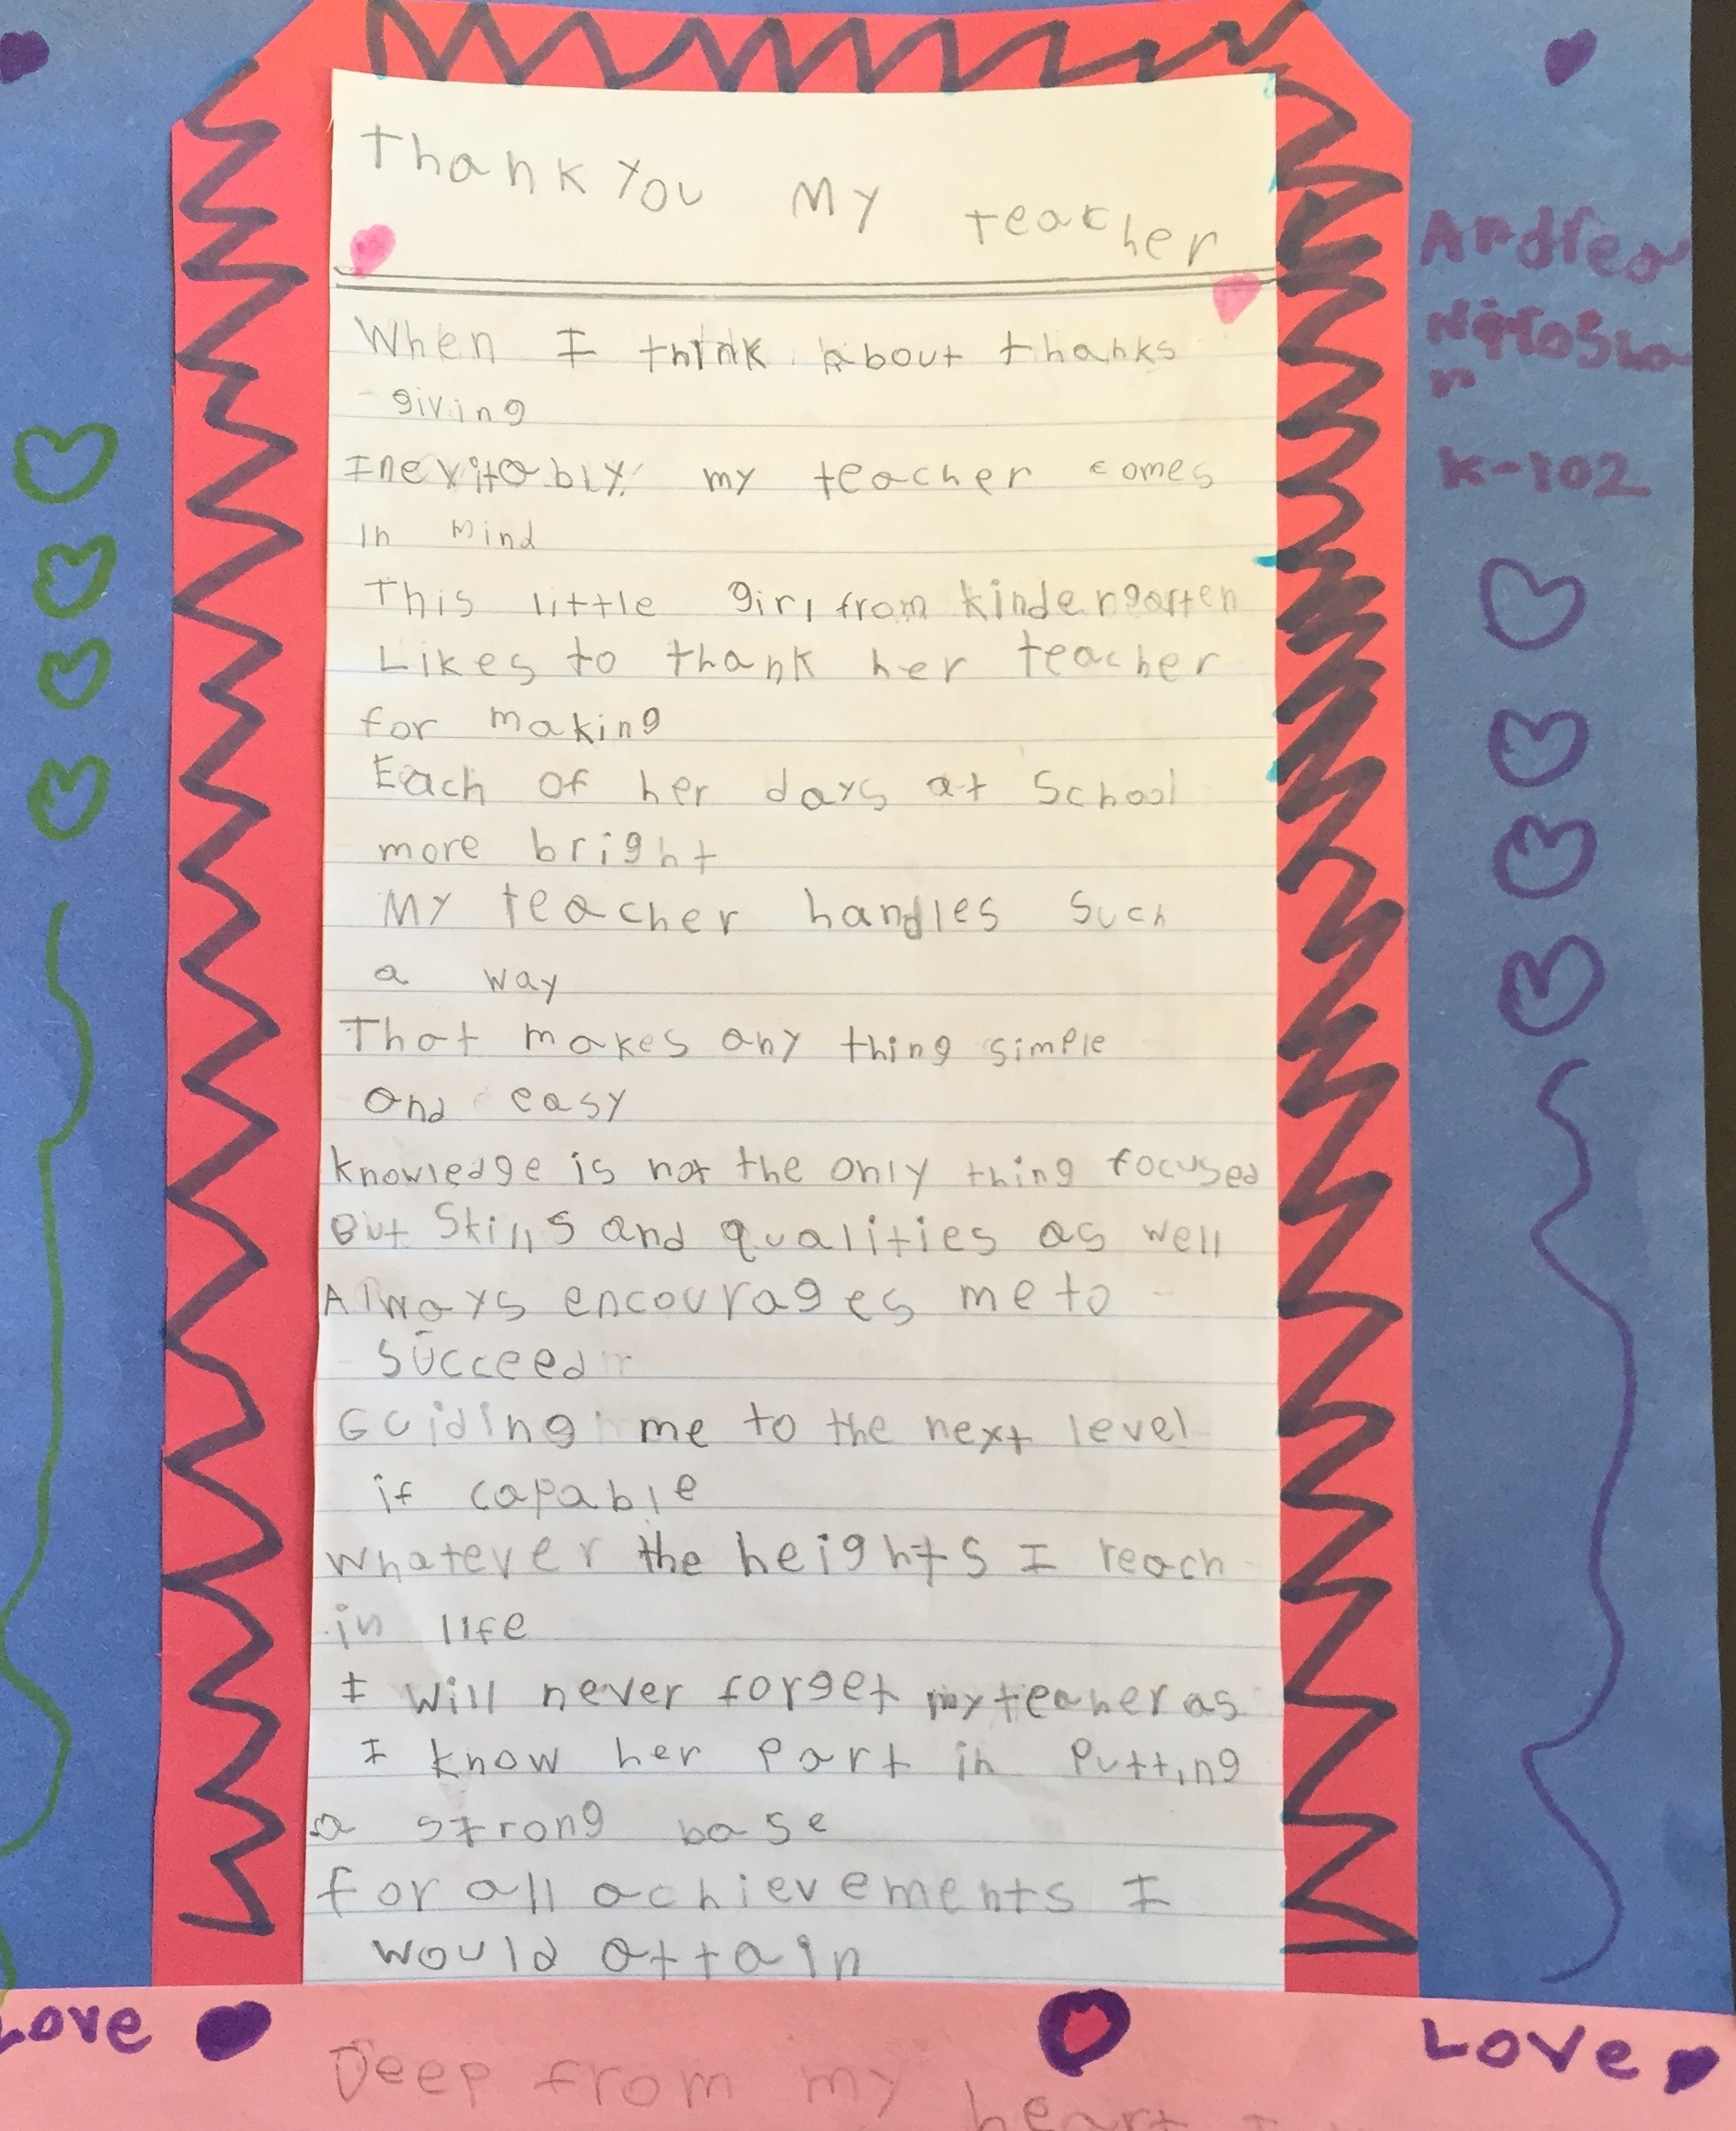 Thank You My teacher
When I think about thanks
-giving
Inevitably my teacher comes
in mind
This little girl from kindergarten
Likes to thank her teacher
for making
Each of her days at School
more bright
My teacher handles such
a way
That makes any thing simple
and easy
knowledge is not the only thing focused
But Skills and qualities as well
Always encourages me to
succeed
Guiding me to the next level
if capable
whatever the heights I reach
in life
I will never forget my teacher as
I know her part in putting
a strong base
for all achievements I
would attain
K-102
Love
Love
Deep from my heart I